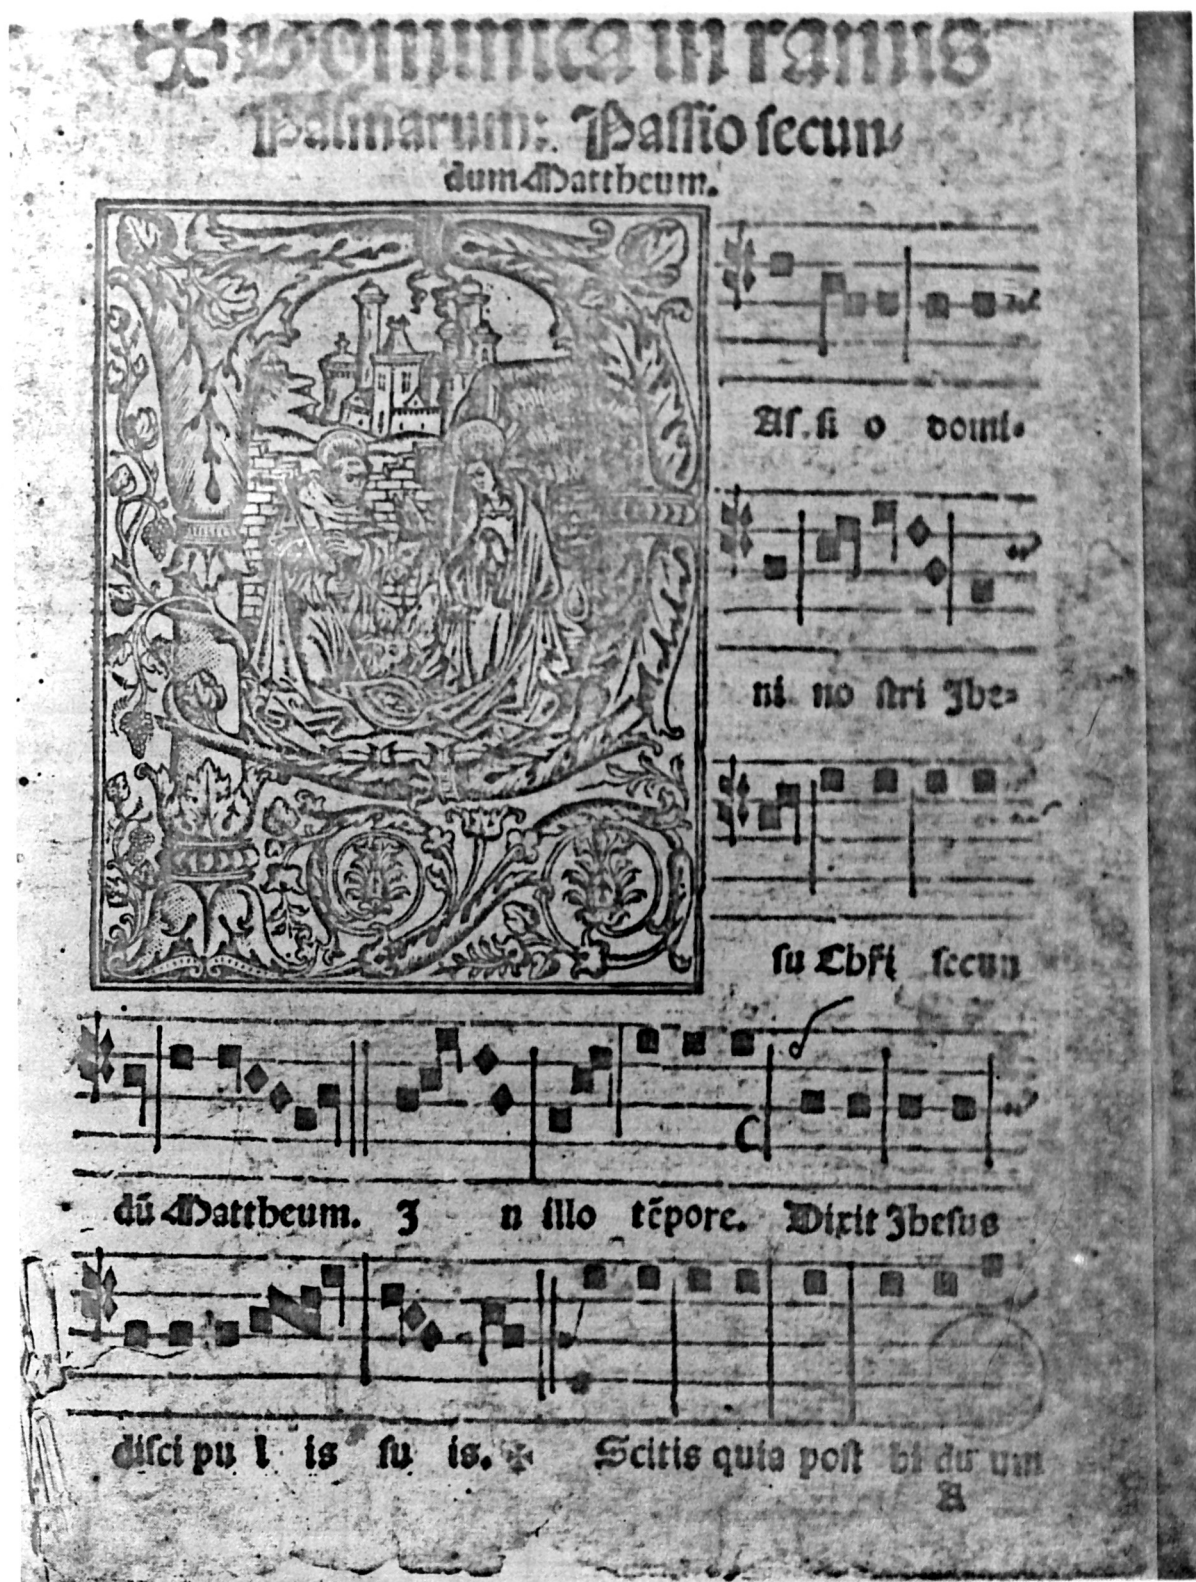 ✠ Dominica in ramis
Palmarum: Passio secun⸗
dum Mattheum.
P
Aſ. ſi o domi⸗
ni no ſtri Jhe⸗
ſu Chr̃i ſecun
dũ Mattheum. J n illo tẽpore. Dixit Jheſus
diſci pu l is ſu is. ✠ Scitis quia poſt bi du um
A